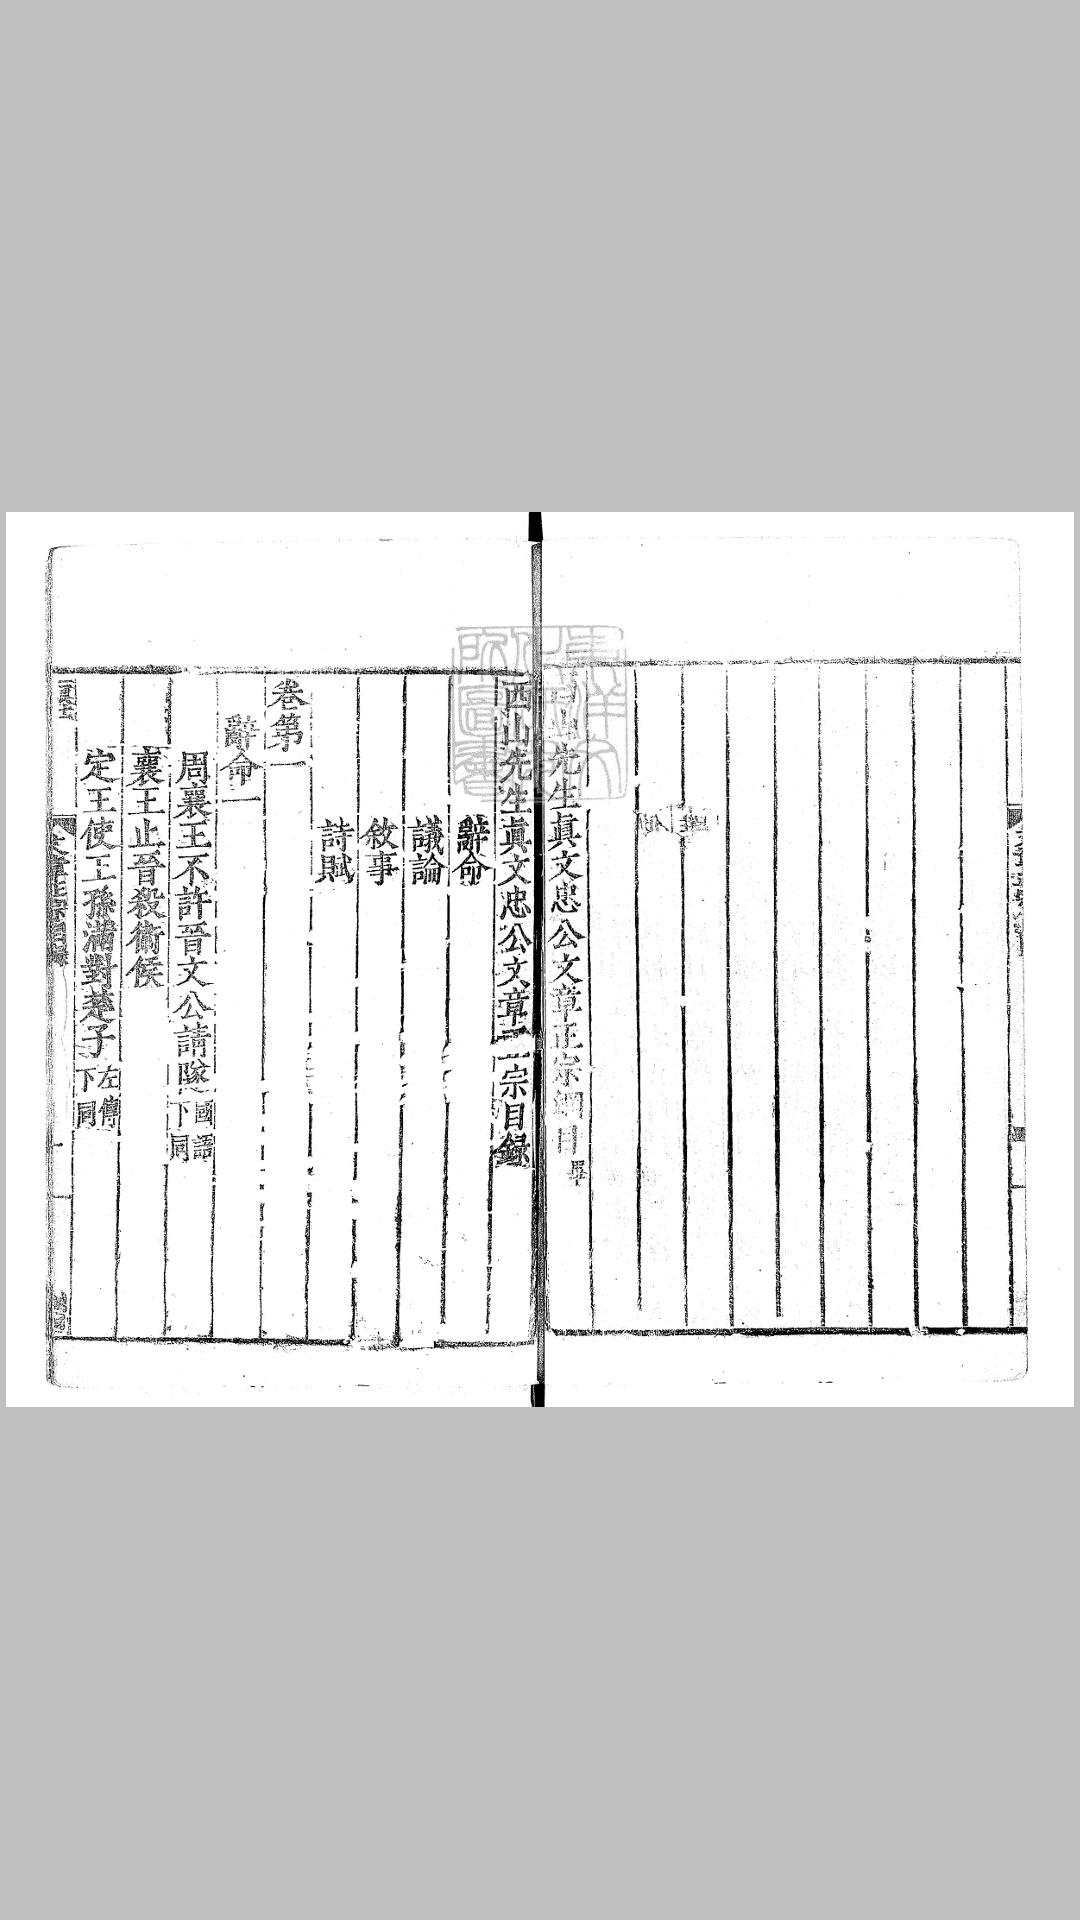 西山先生眞文忠公文章正宗綱目畢
西山先生眞文忠公文章正宗目録
辭命
議論
敘事
詩賦
卷第一
辭命一
周襄王不許晉文公請隧國語下同
襄王止晉殺衛侯
定王使王孫滿對楚子左傳下同